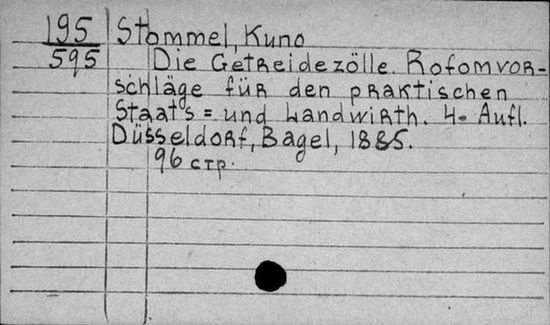 195 Stommel, Kuno
595 Die Getreidezölle. Rofomvor-
schläge für den praktischen
Staats= und Landwirth. 4- Aufl.
Düsseldorf, Bagel, 1885.
96 стр.